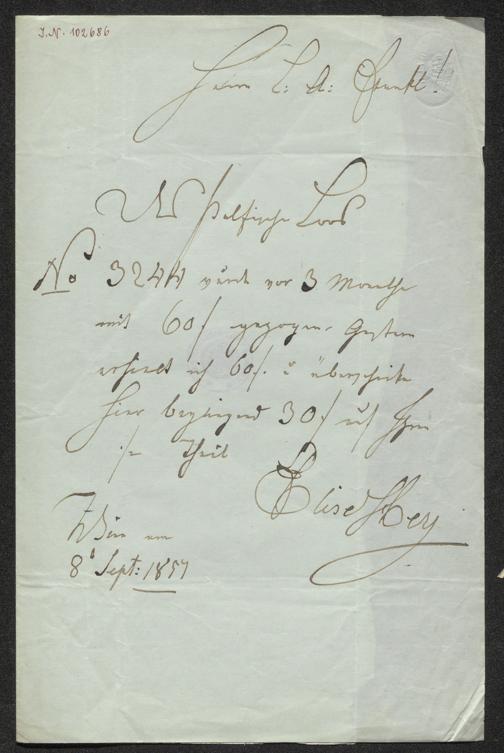 I.N. 102686
Herrn L: A: Frankl!
Das Palfische Loos
No 32411 wurde vor 3 Monathe
mit 60 f gezogen. Gestern
erhielt ich 60 f. u überschicke
hier beyliegend 30 f als Ihren
Theil
Elise Hey
Wien am
8t Sept: 1857